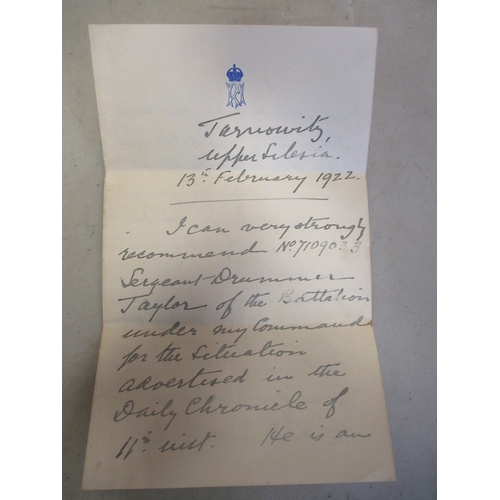 Tarnowitz,
Upper Silesia.
13th February 1922.
I can very strongly
recommend No 7109033
Sergeant-Drummer
Taylor of the Battalion
under my Command
for the Situation
advertised in the
Daily Chronicle of
11th inst. He is an